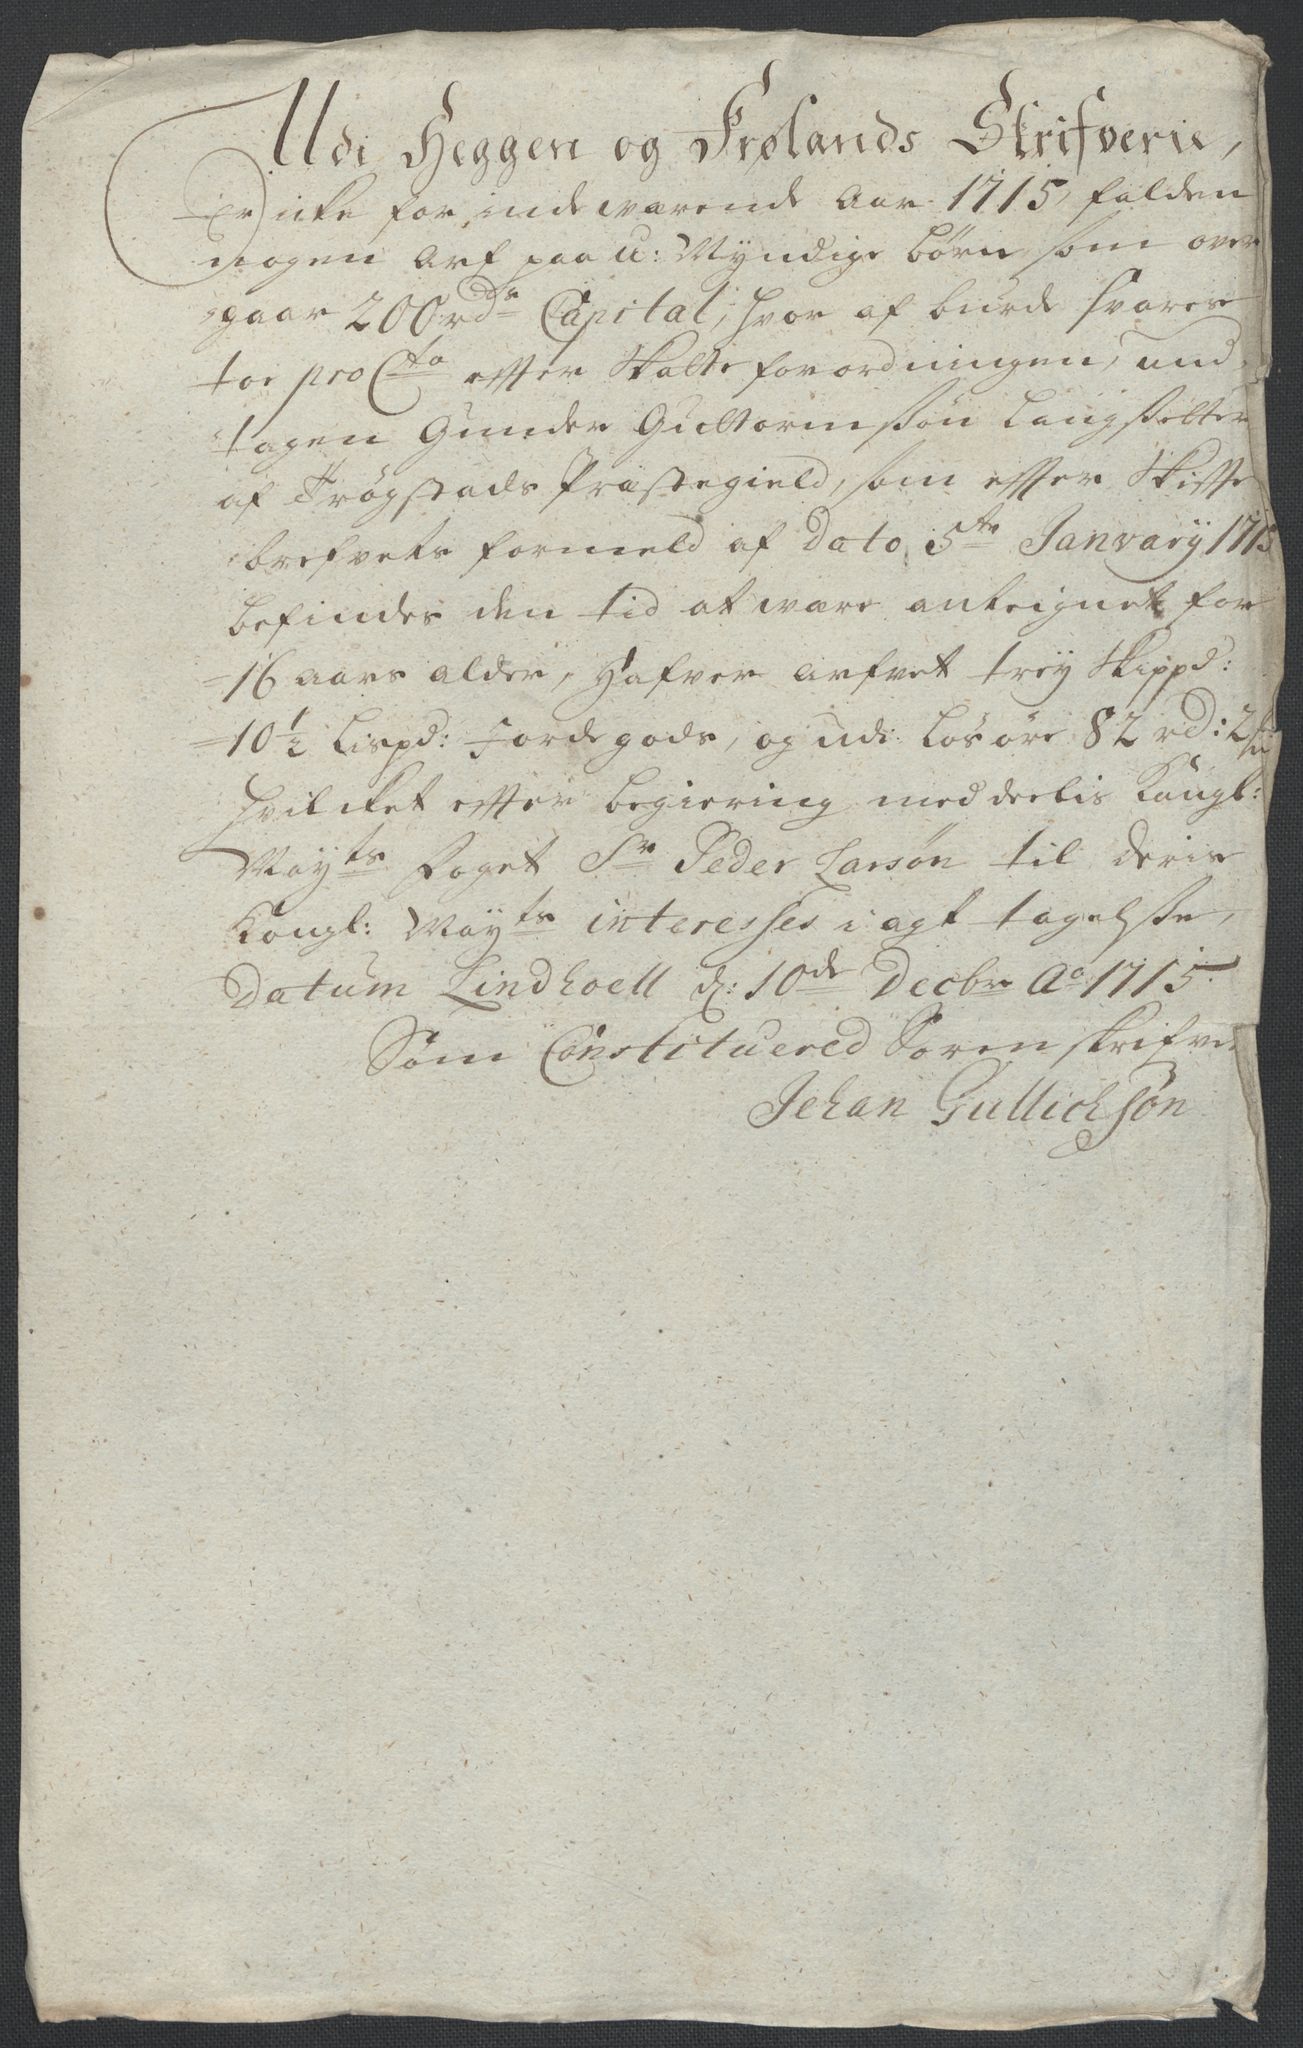 Udi Heggen og Frølands Skrifverie,
Er icke for inde warende Aar 1715, falden
nogen Arf paa u: Myndige børn som over
gaar 200 rdr Capital, hvor af burde svares
toe pro Cto effter Skatte forordningen, und
tagen Gunder Guttormssøn Langsetter
af Trøgstads Præstegield, som effter Skiffte
brefvets formeld af dato 5te Janvarij 1715
befindes den tid at ware anteignet for
16 aars alder, hafver arfvet trej Skippd:
10½ Lispd: Jordegods, og udi Løsøre 82 rd: 2
hvilcket effter begiering meddeelis Kongl:
Mayts Foget Sr Peder Larsøn til deris
Kongl: Mayts interesses i agt tagelsse,
Datum Lindhoell d: 10de Decbr Ao 1715.
Som Constituered Sorenskrifver
Jehan Gullichsøn